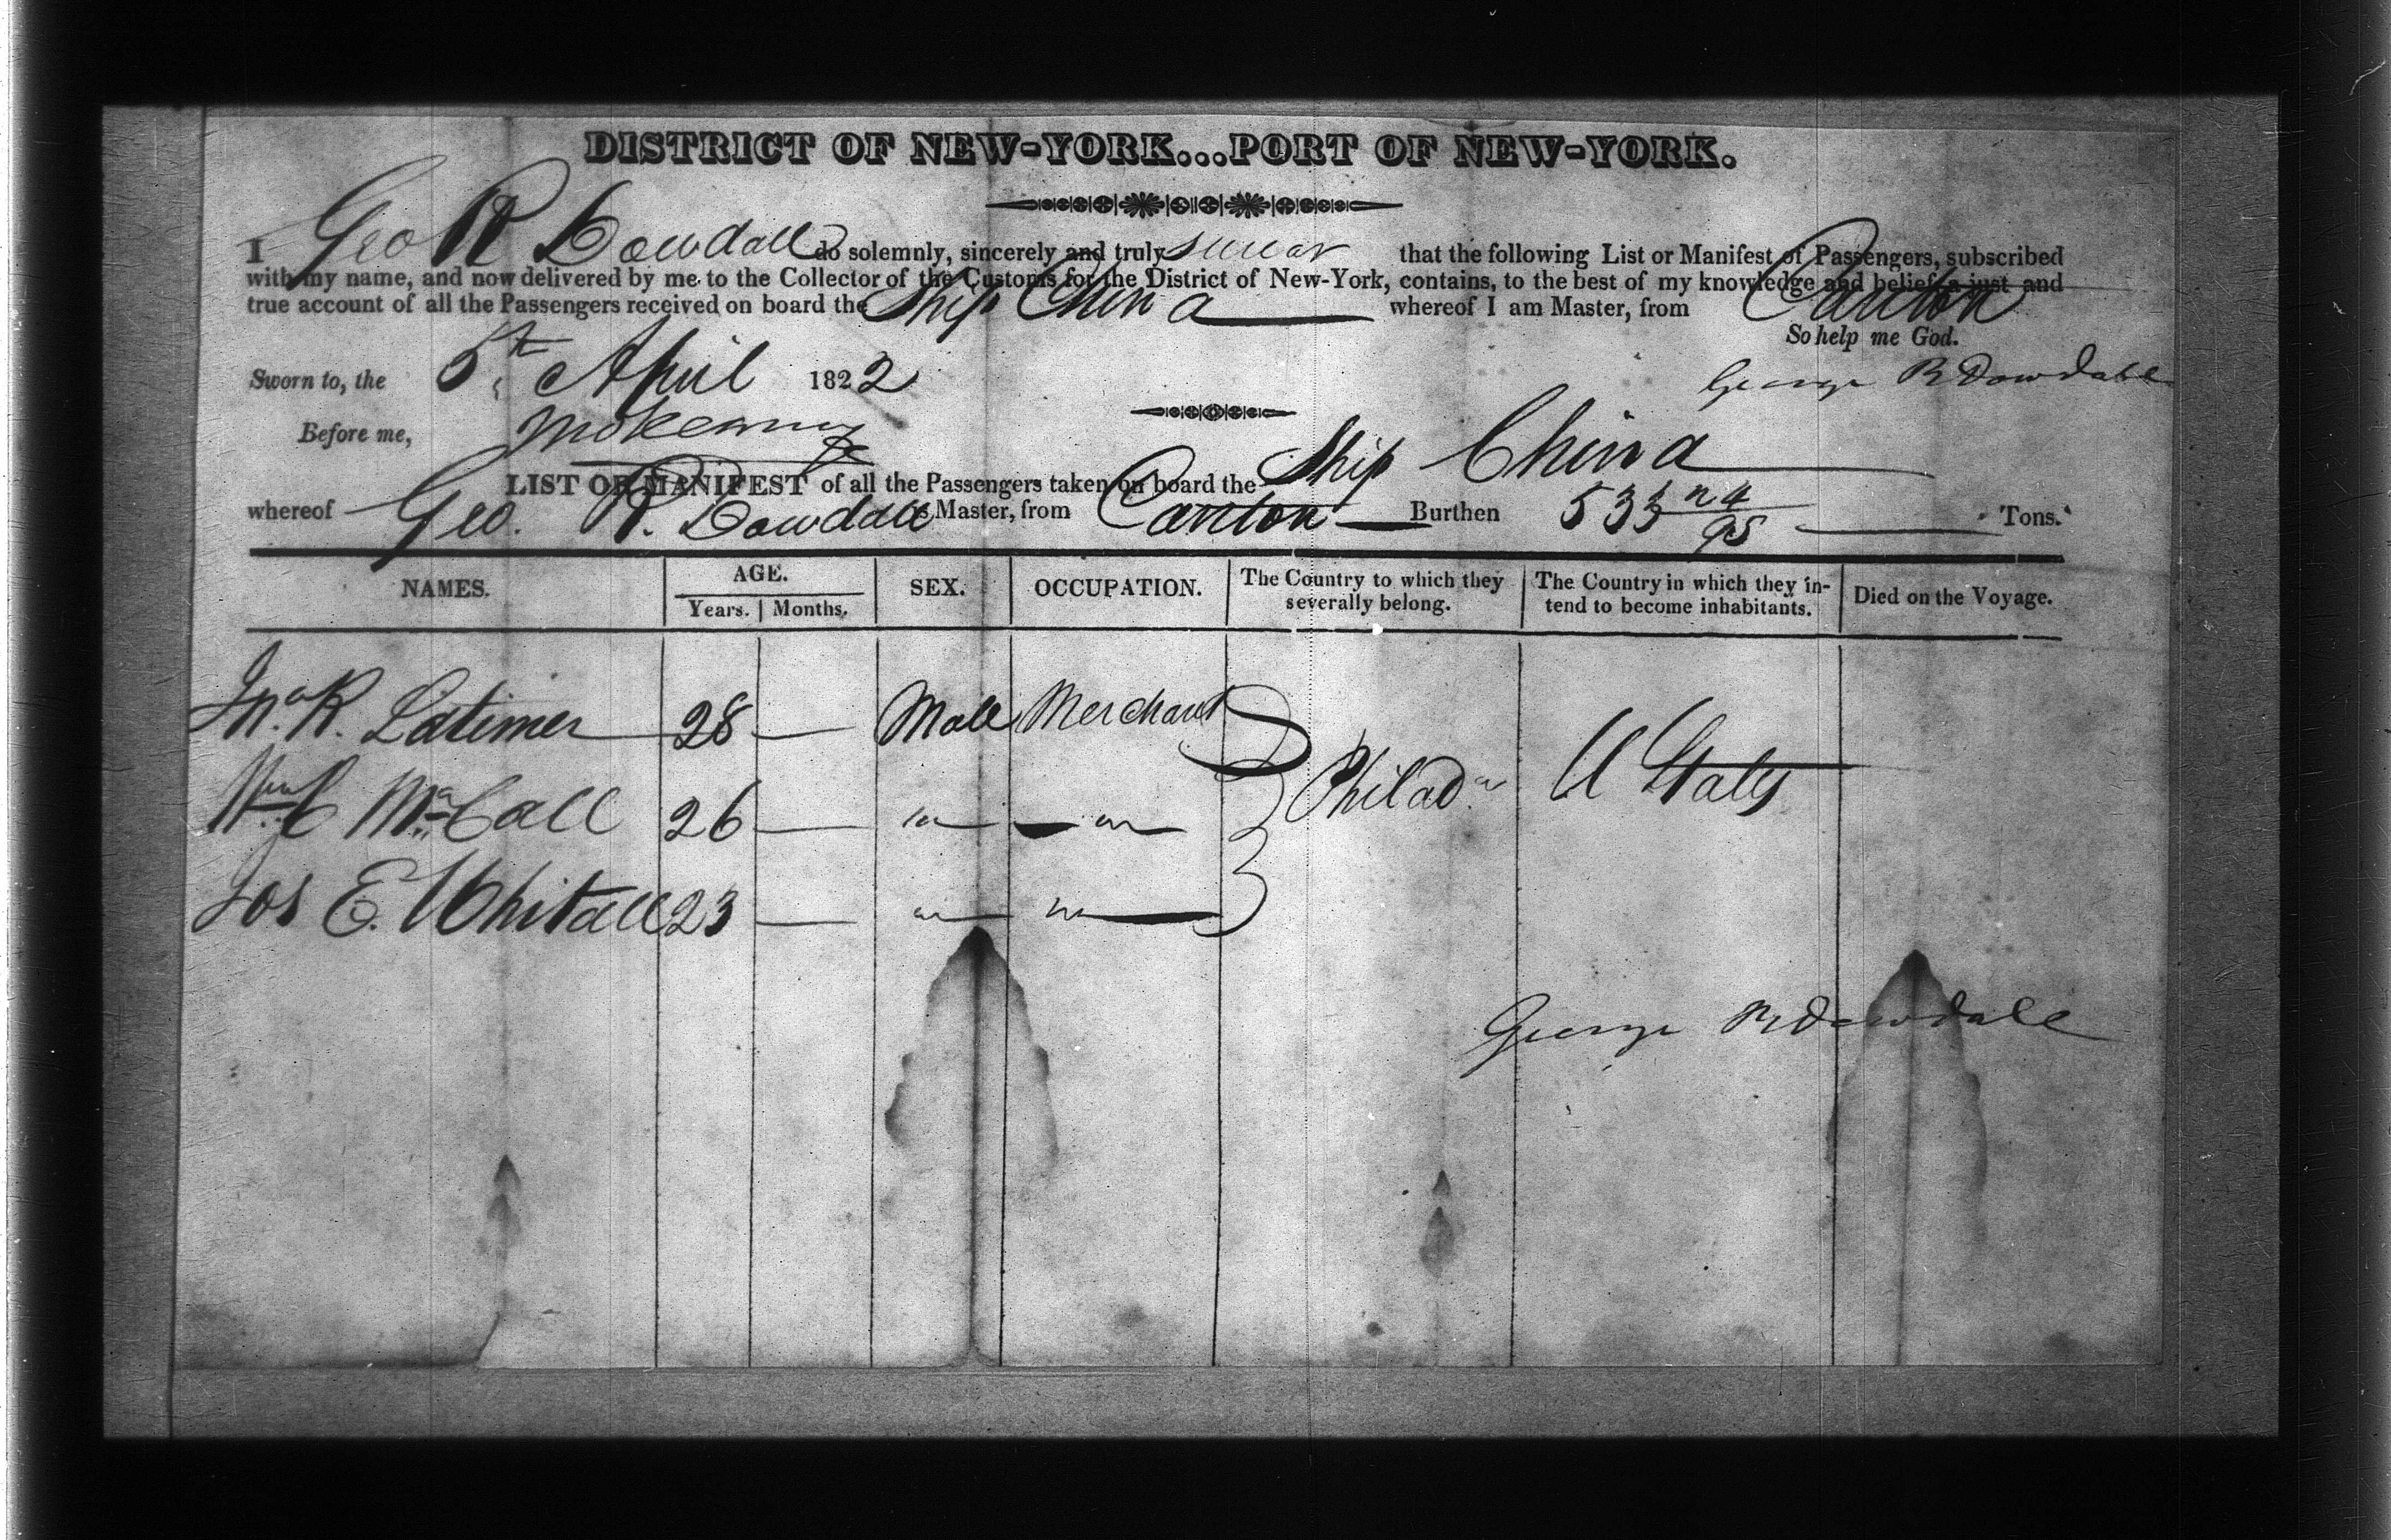 DISTRICT OF NEW-YORK...PORT OF NEW-YORK.
I Geo R Dowdall do solemnly, sincerely and truly swear that the following List or Manifest of Passengers, subscribed
with my name, and now delivered by me to the Collector of the Customs for the District of New-York, contains, to the best of my knowledge and belief, a just and
true account of all the Passengers received on board the Ship China whereof I am Master, from Canton
So help me God.
Sworn to, the 5th April 1822
George R Dowdall
Before me,
LIST OR MANIFEST of all the Passengers taken on board the Ship China
whereof Geo. R. Dowdall is Master, from Canton Burthen 533 /95 Tons.
NAMES. AGE. SEX. OCCUPATION. The Country to which they severally belong. The Country in which they intend to become inhabitants. Died on the Voyage.
Years. Months.
Jno. R. Latimer 28 — Male Merchant
Philada U States
Wm C McCall 26 — " "
Jos E. Whitall 23 — " "
George R Dowdall